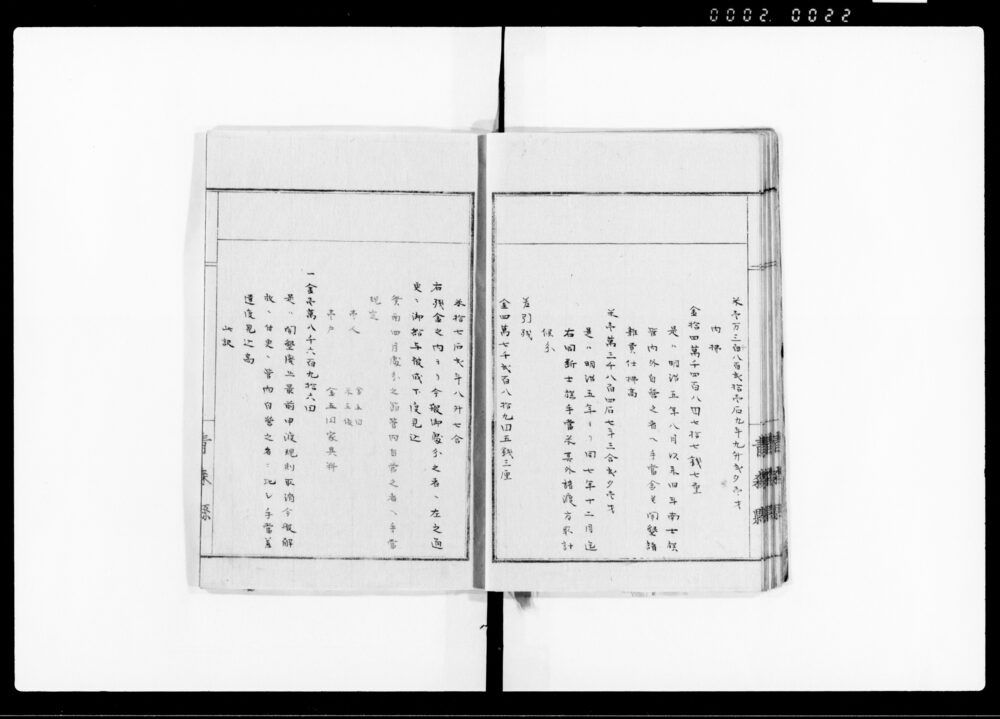 0002 0022
米壱万三百八百弐拾壱石九斗九升弐夕壱才
内拂
金拾四萬千四百八円七拾七銭七厘
是ハ明治五年八月以来四年南士族
管内外自営之者ヘ手当金并開墾諸
雑費仕拂高
米壱萬三千八百四石七斗三合弐夕壱才
是ハ明治五年ヨリ同七年十二月迄
右同断士族手當米其外諸渡方取計
候分
差引残
金四萬七千弐百八拾九円五銭三厘
米拾七石弐斗八升七合
右残金之内ヨリ今般御處分之者ヘ左之通
更ニ御給与被成下度見込
管内自営之者ヘ手当
規定
壱人
金五円
米五俵
壱戸
金五円家具料
一金壱萬八千六百九拾六円
是ハ開墾廢止最前申渡規則取消今般解
放ニ付更ニ管内自営之者ニ比シ手當差
遣度見込高
此訳
青森縣
青森縣